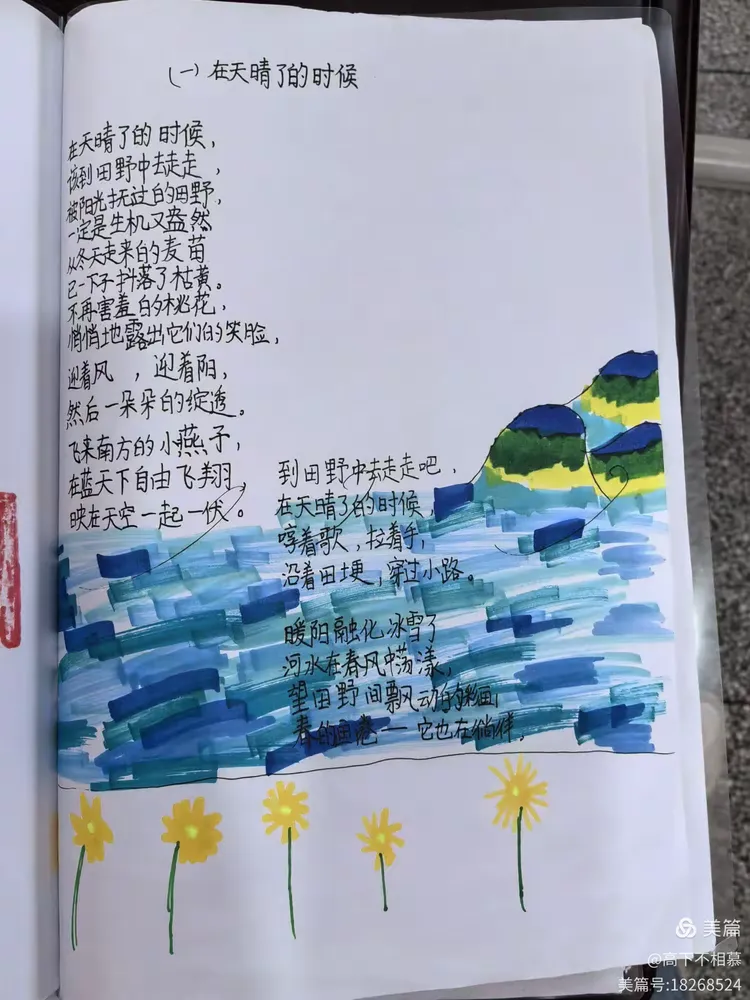 (一) 在天晴了的时候
在天晴了的时候,
该到田野中去走走,
被阳光抚过的田野,
一定是生机又盎然
从冬天走来的麦苗
已一下子抖落了枯黄。
不再害羞的桃花,
悄悄地露出它们的笑脸,
迎着风 , 迎着阳,
然后一朵朵的绽透。
飞来南方的小燕子,
在蓝天下自由飞翔,
映在天空一起一伏。
到田野中去走走吧,
在天晴了的时候,
哼着歌,拉着手,
沿着田埂,穿过小路。
暖阳融化冰雪了
河水在春风中荡漾,
望田野间飘动的
春的画卷——它也在徜徉。
美篇
@高下不相慕
美篇号:18268524